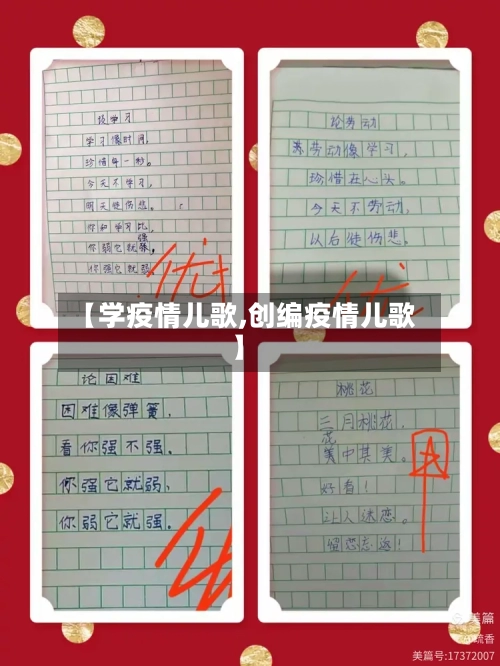 谈学习
学习像时间,
珍惜每一秒。
今天不学习,
明天徒伤悲。
你和学习比,
强
你弱它就强,
你强它就弱
优
论劳动
劳动像学习,
珍惜在心头。
今天不劳动,
以后徒伤悲。
优
【学疫情儿歌,创编疫情儿歌
】
论困难
困难像弹簧,
看你强不强。
你强它就弱,
你弱它就强。
优
桃花
三月桃花,
花
美中其美。
好看!
让人迷恋。
留恋忘返!
美篇
美篇号:17372007